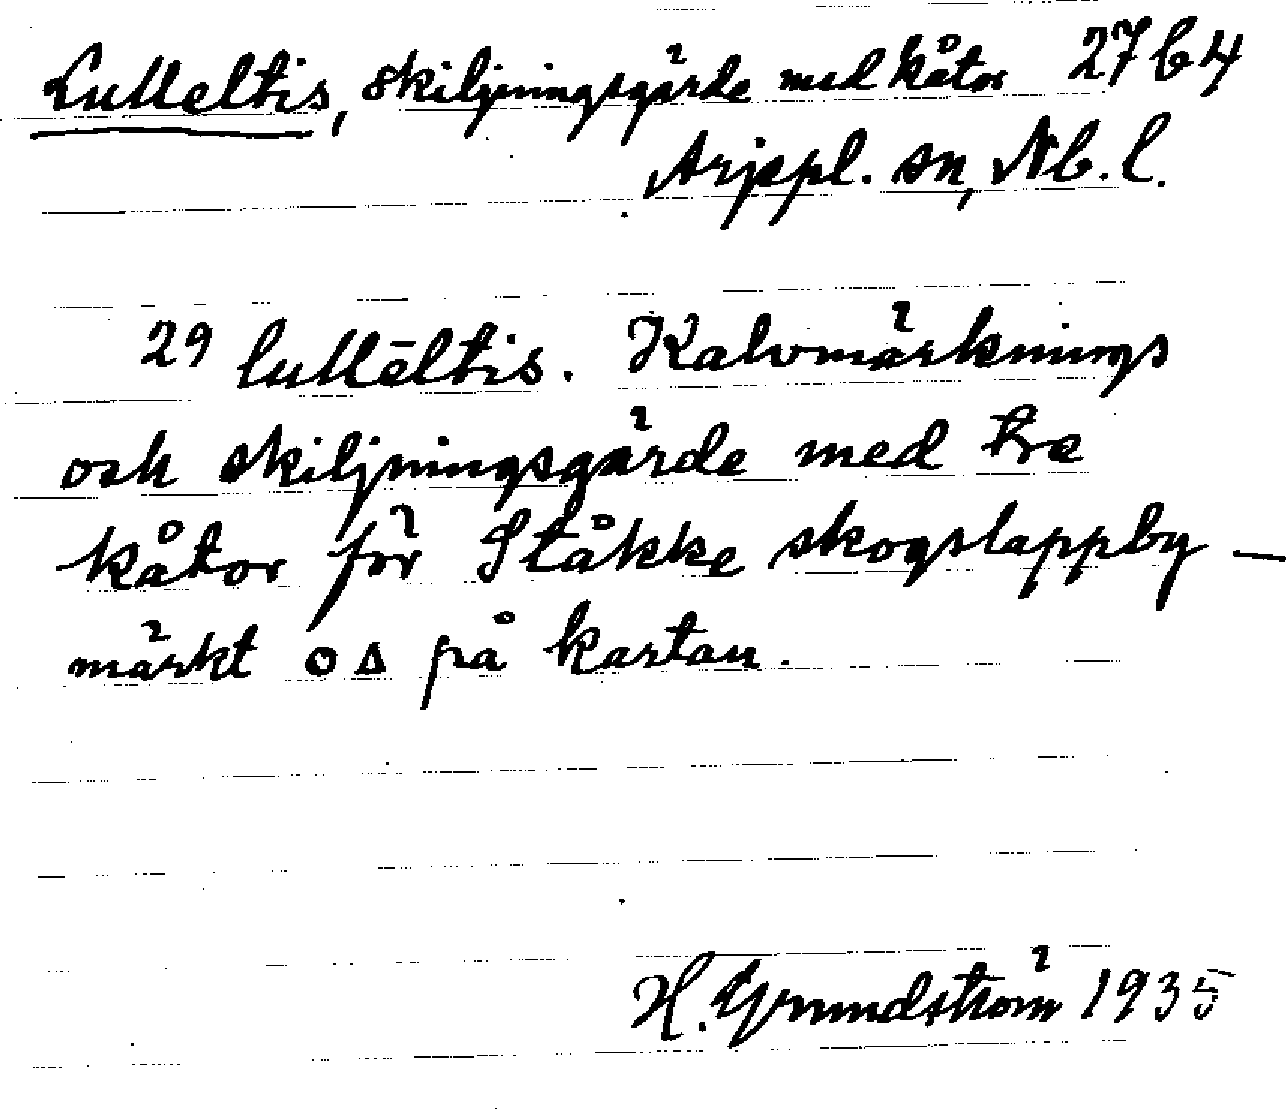 Lulleltis, skiljningsgärde med kåtor 27 b 4
Arjepl. sn, Nb. l.
29 lullēltis. Kalvmärknings
och skiljningsgärde med tre
kåtor för Ståkke skogslappby —
märkt o Δ på kartan.
H. Grundström 1935